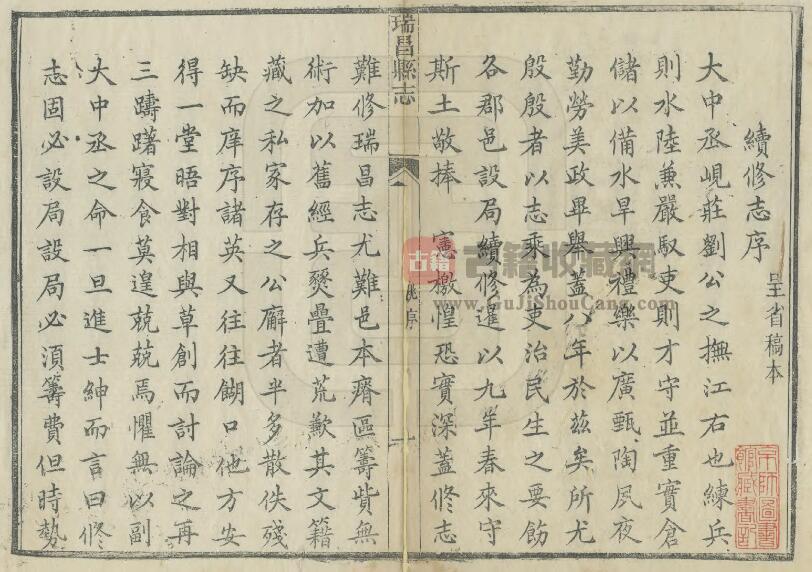 續修志序
呈省稿本
大中丞峴莊劉公之撫江右也練兵
則水陸兼嚴馭吏則才守並重實倉
儲以備水旱興禮樂以廣甄陶夙夜
勤勞美政畢舉蓋八年於茲矣所尤
殷殷者以志乘為吏治民生之要飭
各郡邑設局續修暹以九年春來守
斯土敬捧 憲檄惶恐實深蓋修志
瑞昌縣志
序
一
難修瑞昌志尤難邑本瘠區籌貲無
術加以舊經兵燹疊遭荒歉其文籍
藏之私家存之公廨者半多散佚殘
缺而庠序諸英又往往餬口他方安
得一堂晤對相與草創而討論之再
三躊躇寢食莫遑兢兢焉懼無以副
大中丞之命一旦進士紳而言曰修
志固必設局設局必須籌費但時勢
京師圖書
館藏書記
古籍
古籍收藏網
www.GuJiShouCang.com